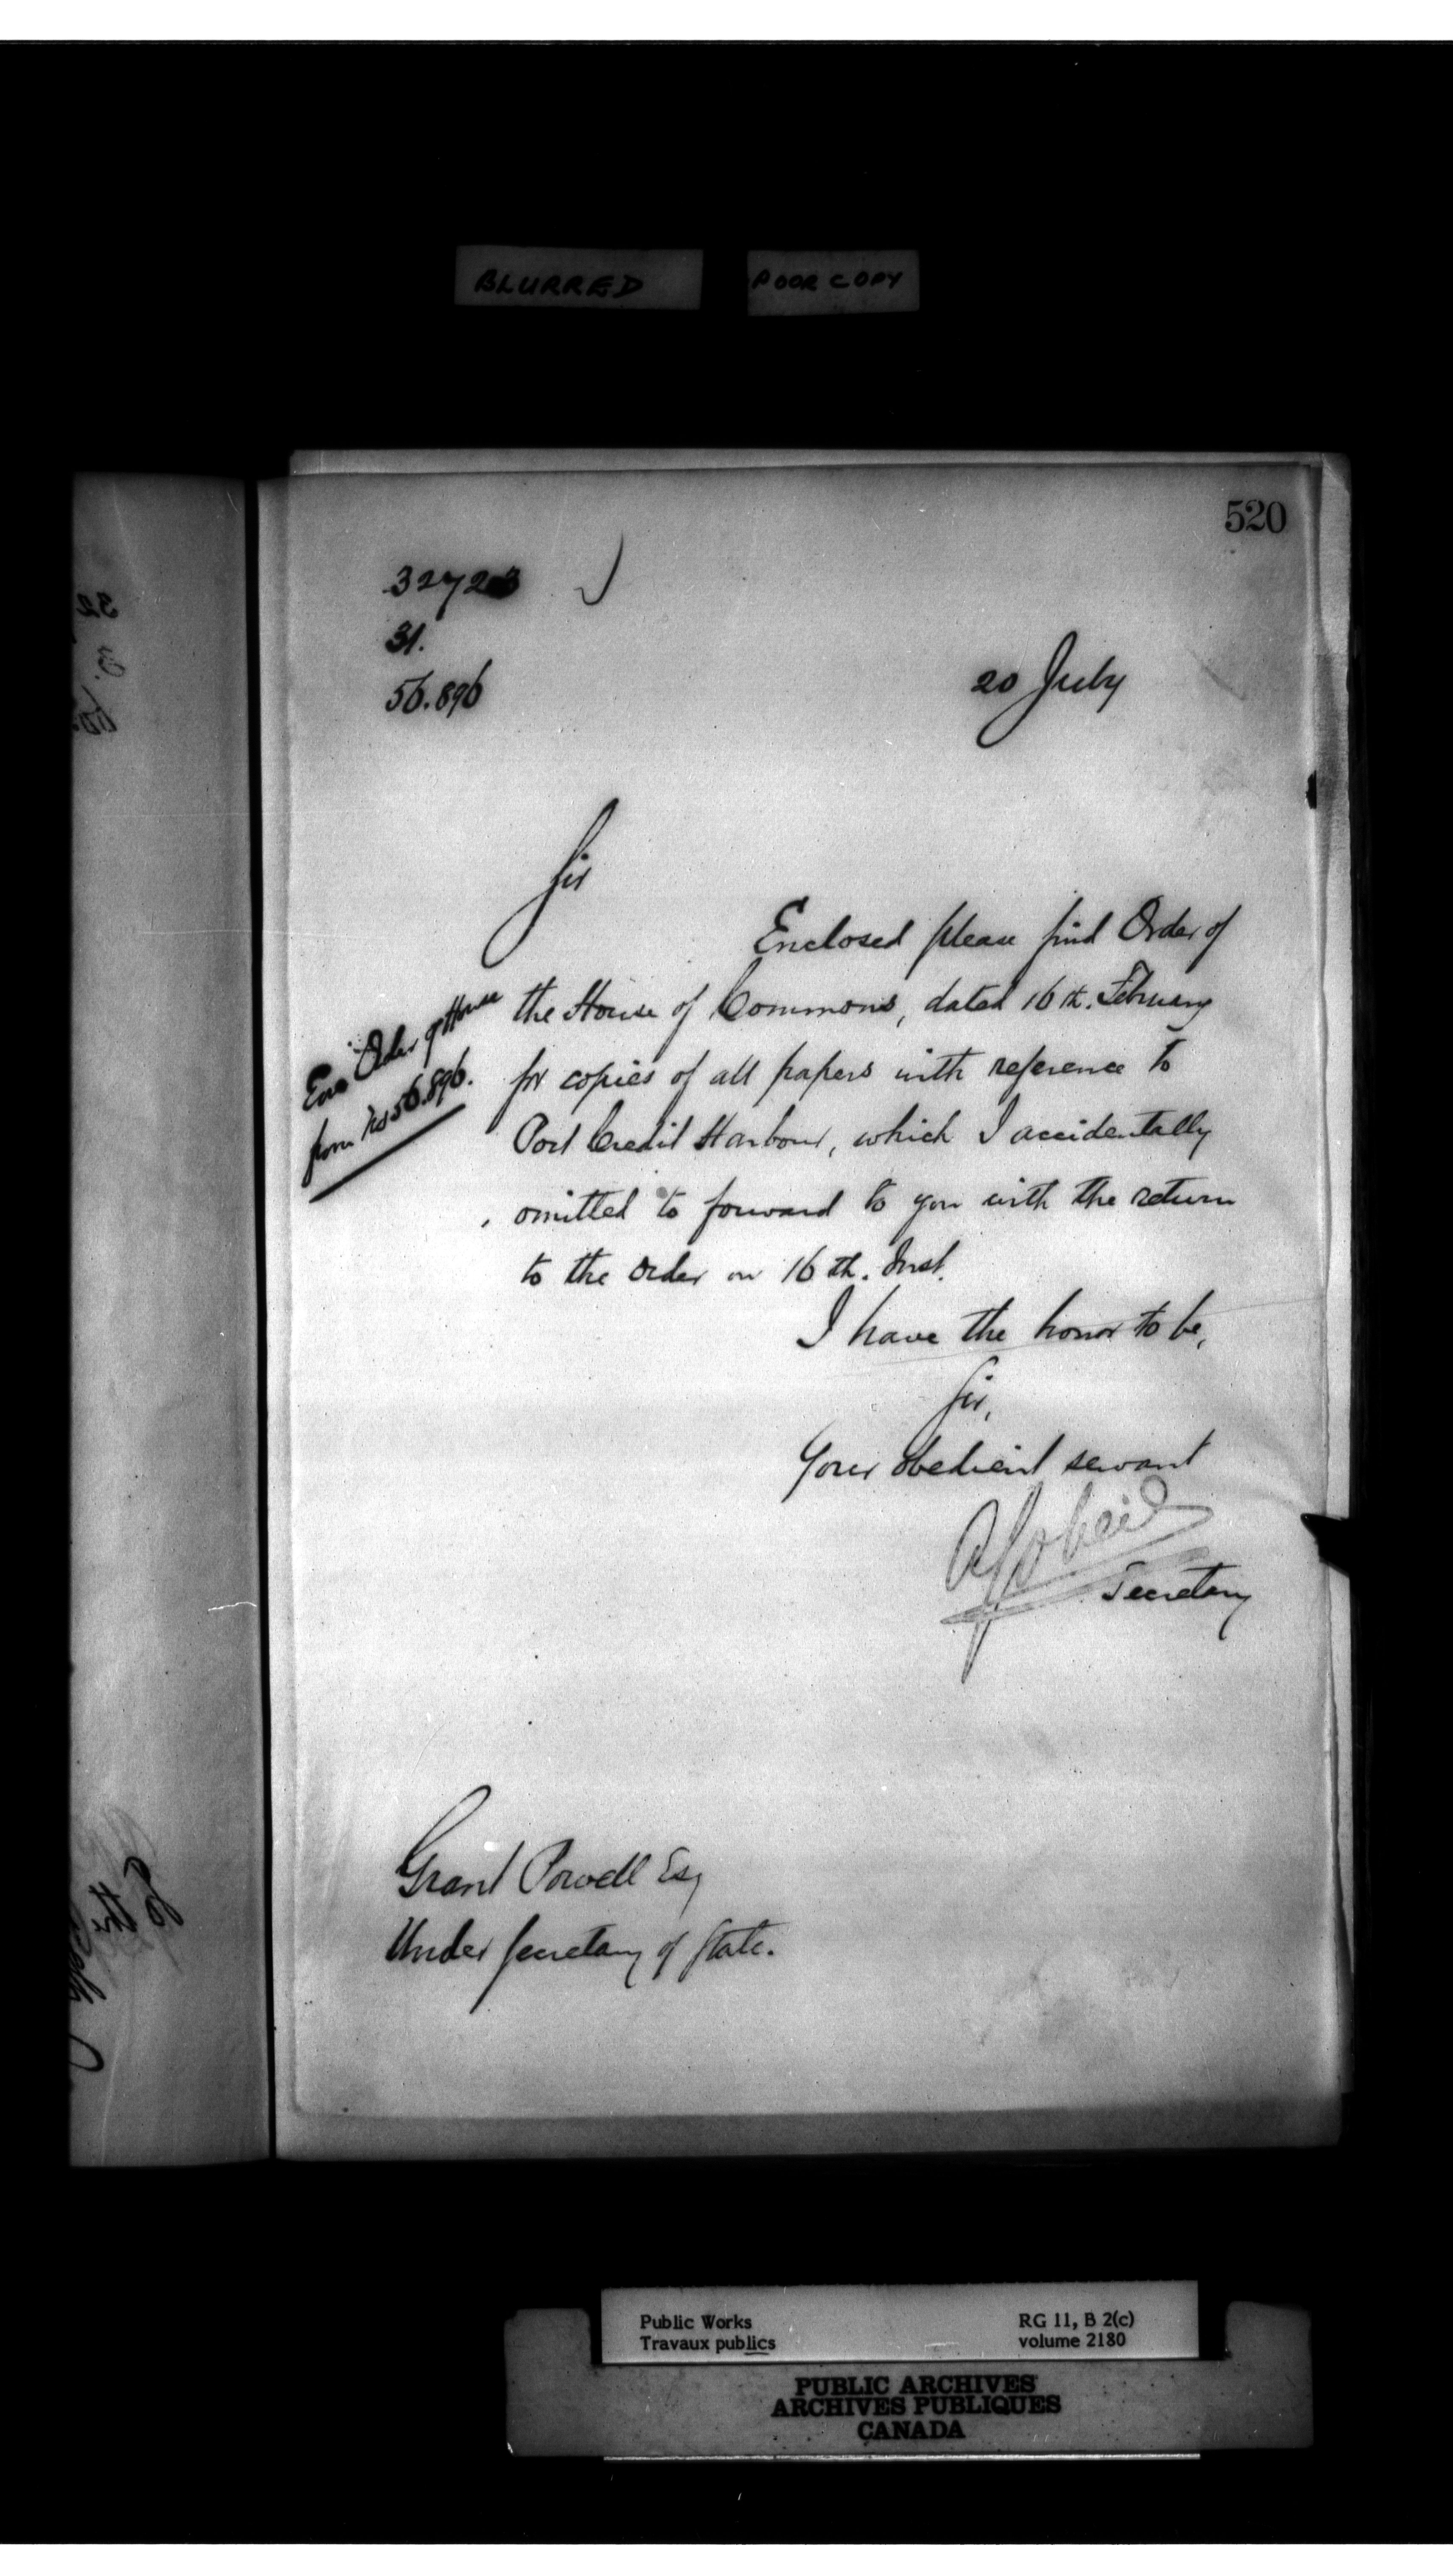 BLURRED POOR COPY
520
32723
31.
56.896
20 July
Sir
Enclosed please find Order of
the House of Commons, dated 16th. February
for copies of all papers with reference to
Port Credit Harbour, which I accidentally
omitted to forward to you with the return
to the order on 16th. Inst.
Order of House
from No 56.896.
I have the honor to be,
Sir,
Your obedient servant
Secretary
Grant Powell Esq
Under Secretary of State.
Public Works RG 11, B 2(c)
Travaux publics volume 2180
PUBLIC ARCHIVES
ARCHIVES PUBLIQUES
CANADA